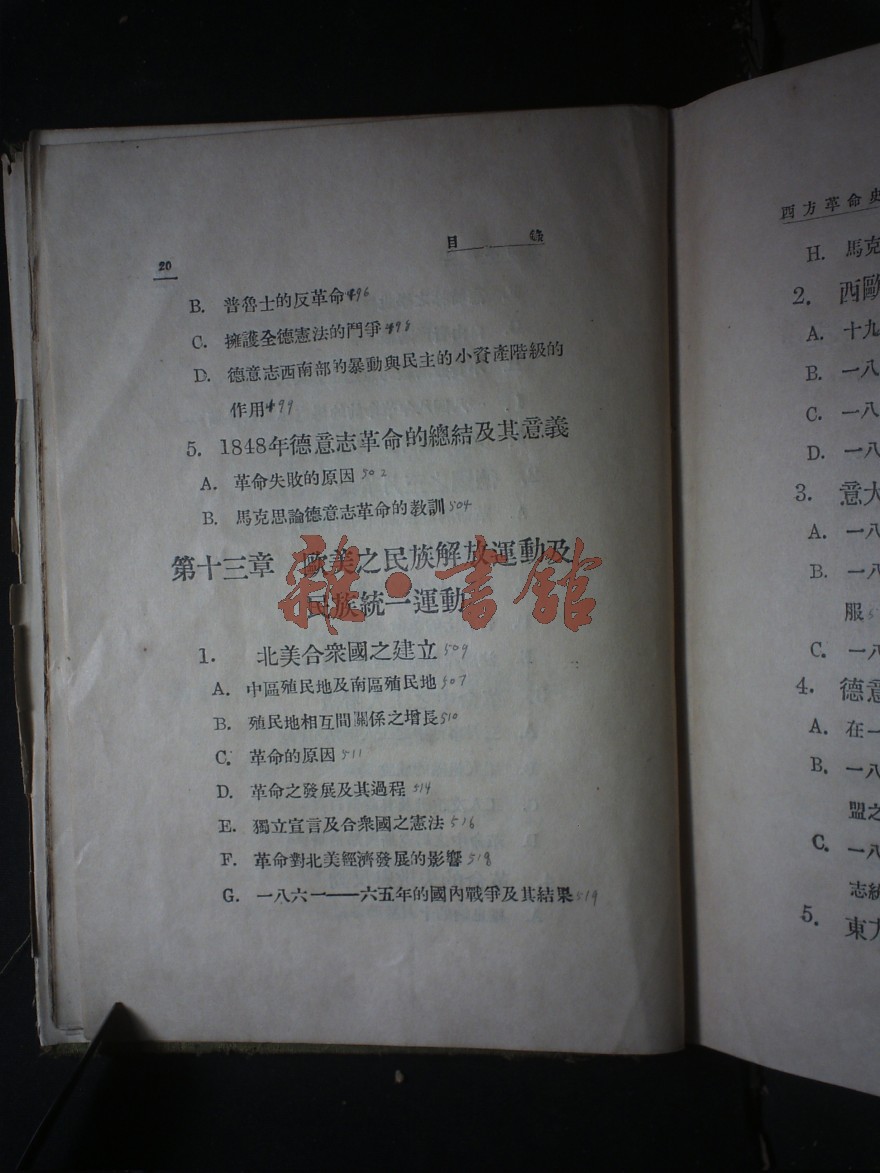 20
目 錄
B. 普魯士的反革命496
C. 擁護全德憲法的鬥爭498
D. 德意志西南部的暴動與民主的小資產階級的
作用499
5. 1848年德意志革命的總結及其意義
A. 革命失敗的原因502
B. 馬克思論德意志革命的教訓504
第十三章 歐美之民族解放運動及
民族統一運動
雜·書館
1. 北美合衆國之建立509
A. 中區殖民地及南區殖民地507
B. 殖民地相互間關係之增長510
C. 革命的原因511
D. 革命之發展及其過程514
E. 獨立宣言及合衆國之憲法516
F. 革命對北美經濟發展的影響518
G. 一八六一——六五年的國內戰爭及其結果519
西方革命史
H. 馬克
2. 西歐
A. 十九
B. 一八
C. 一八
D. 一八
3. 意大
A. 一八
B. 一八
服
C. 一八
4. 德意
A. 在一
B. 一八
盟之
C. 一八
志統
5. 東方